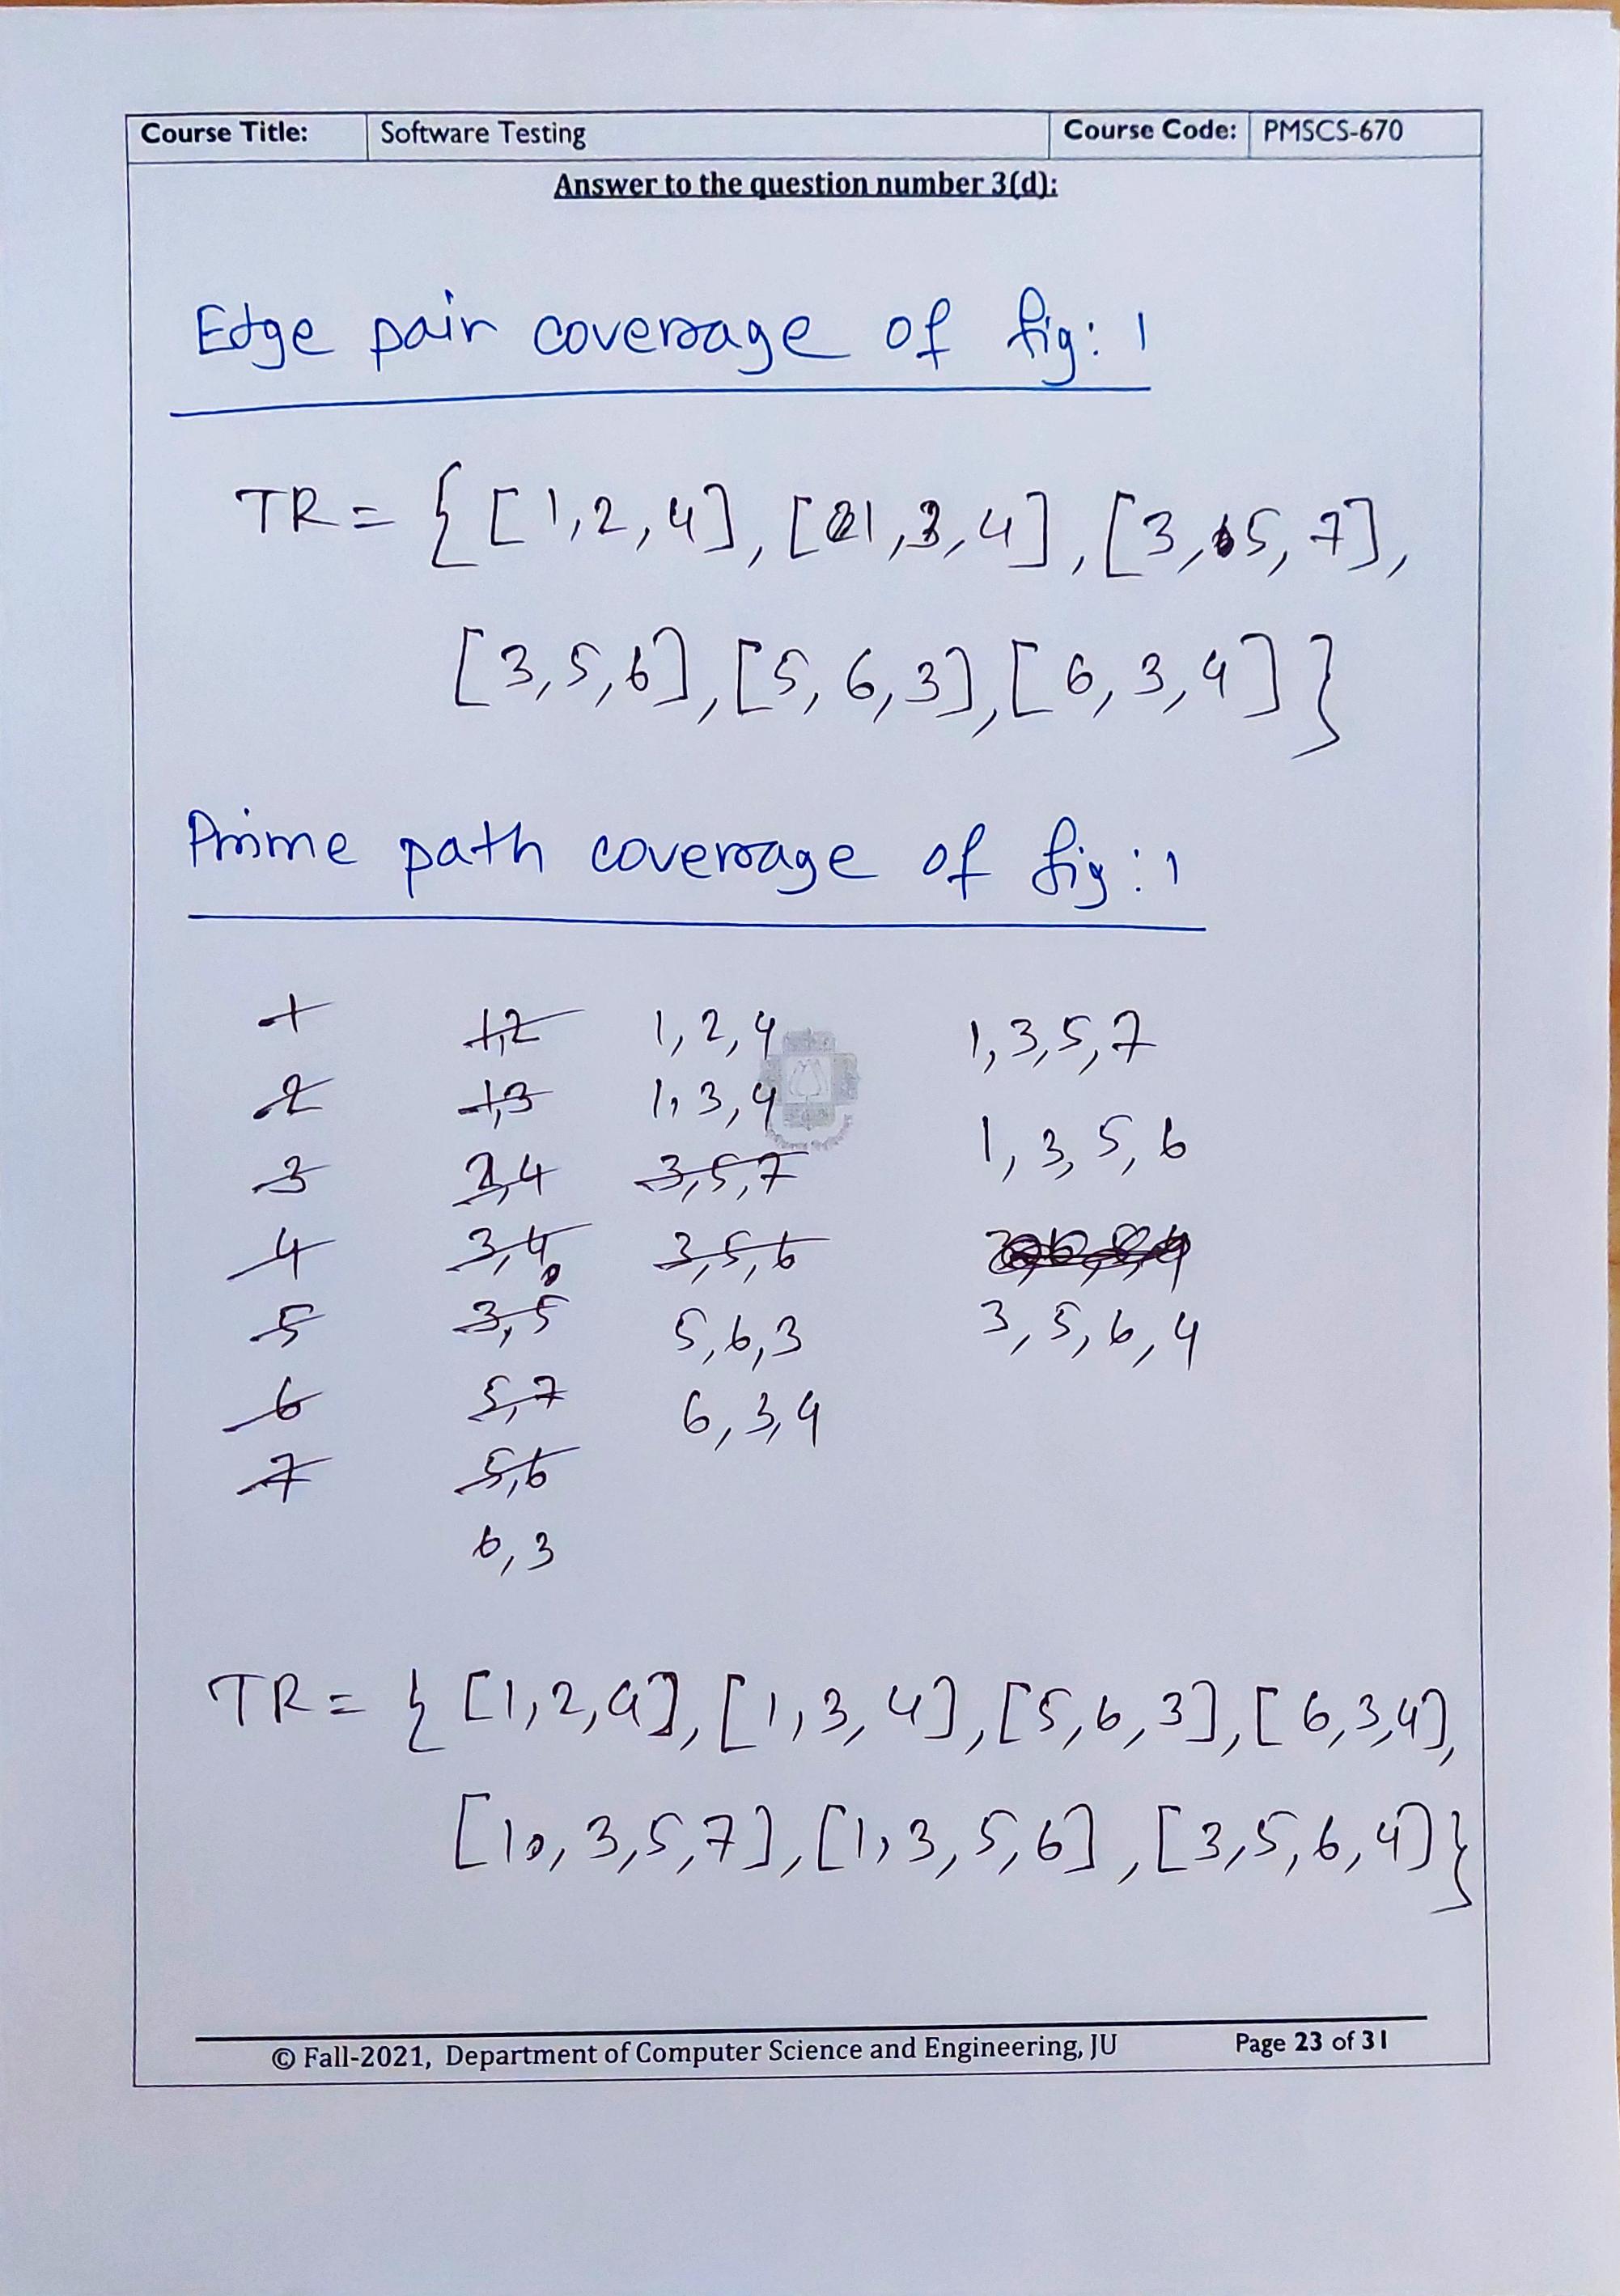 Course Title: Software Testing Course Code: PMSCS-670
Answer to the question number 3(d):
Edge pair coverage of fig: 1
TR = { [1,2,4], [1,3,4], [3,5,7],
[3,5,6], [5,6,3], [6,3,4] }
Prime path coverage of fig: 1
1 1,2 1,2,4 1,3,5,7
2 1,3 1,3,4 1,3,5,6
3 2,4 3,5,7
4 3,4 3,5,6
5 3,5 5,6,3 3,5,6,4
6 5,7 6,3,4
7 5,6
6,3
TR = { [1,2,4], [1,3,4], [5,6,3], [6,3,4],
[1,3,5,7], [1,3,5,6], [3,5,6,4] }
© Fall-2021, Department of Computer Science and Engineering, JU Page 23 of 31